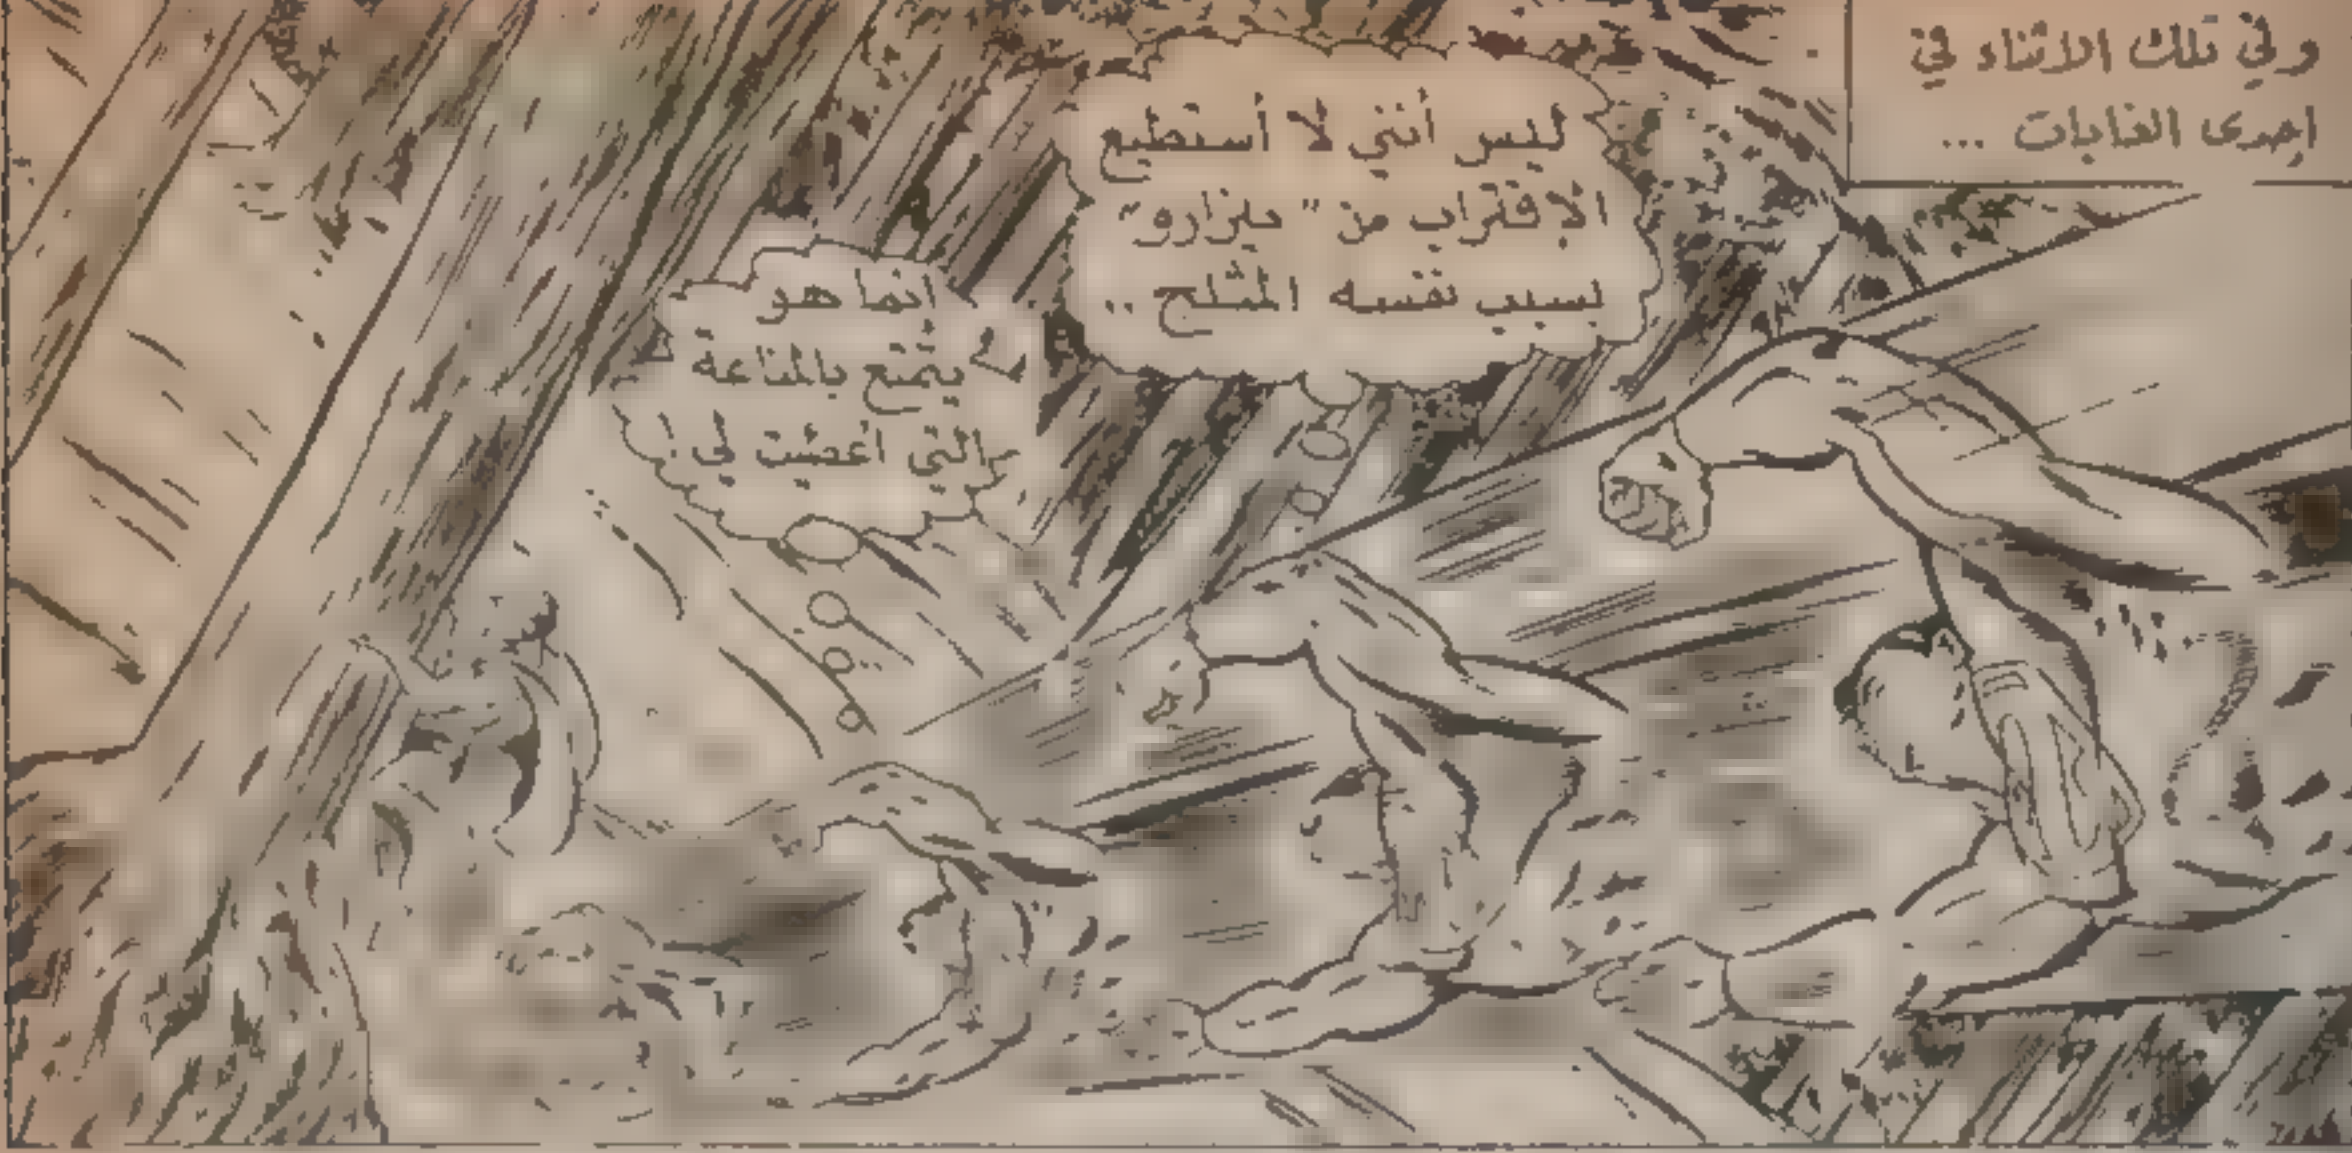 وفي تلك الاثناء في
إحدى الغابات ...
ليس أنني لا أستطيع
الإقتراب من " بيزارو"
بسبب نفسه المثلج ..
إنما هو
يتمتع بالمناعة
التي أعطيت لي !